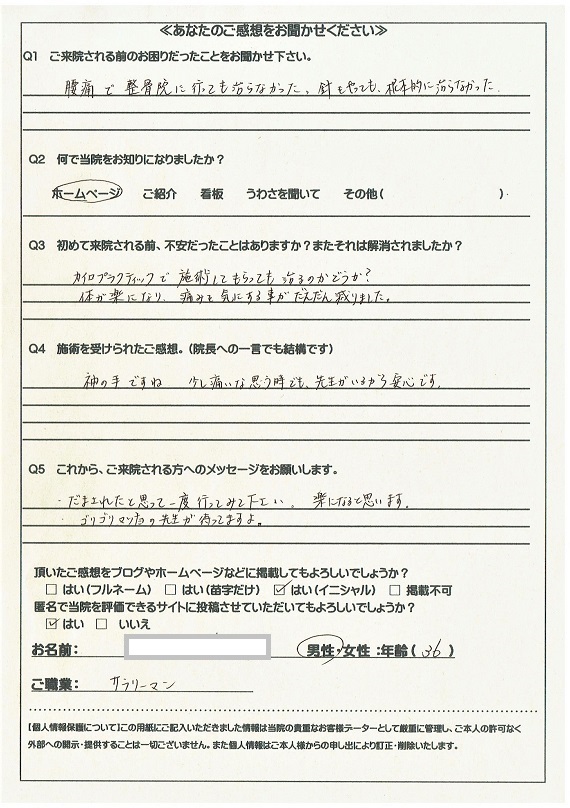 ≪あなたのご感想をお聞かせください≫
Q1 ご来院される前のお困りだったことをお聞かせ下さい。
腰痛で整骨院に行っても治らなかった。針もやっても、根本的に治らなかった。
Q2 何で当院をお知りになりましたか？
ホームページ ご紹介 看板 うわさを聞いて その他( )
Q3 初めて来院される前、不安だったことはありますか？またそれは解消されましたか？
カイロプラクティックで施術してもらっても治るのかどうか？
体が楽になり、痛みも気にする事がだんだん減りました。
Q4 施術を受けられたご感想。（院長への一言でも結構です）
神の手ですね 少し痛いな思う時でも、先生がいるから安心です。
Q5 これから、ご来院される方へのメッセージをお願いします。
・だまされたと思って一度行ってみて下さい。楽になると思います。
・ゴリゴリマッチョの先生が待ってますよ。
頂いたご感想をブログやホームページなどに掲載してもよろしいでしょうか？
□ はい（フルネーム） □ はい（苗字だけ） ☑ はい（イニシャル） □ 掲載不可
匿名で当院を評価できるサイトに投稿させていただいてもよろしいでしょうか？
☑ はい □ いいえ
お名前： 男性・女性：年齢( 36 )
ご職業： サラリーマン
【個人情報保護について】この用紙にご記入いただきました情報は当院の貴重なお客様データーとして厳重に管理し、ご本人の許可なく
外部への開示・提供することは一切ございません。また個人情報はご本人様からの申し出により訂正・削除いたします。